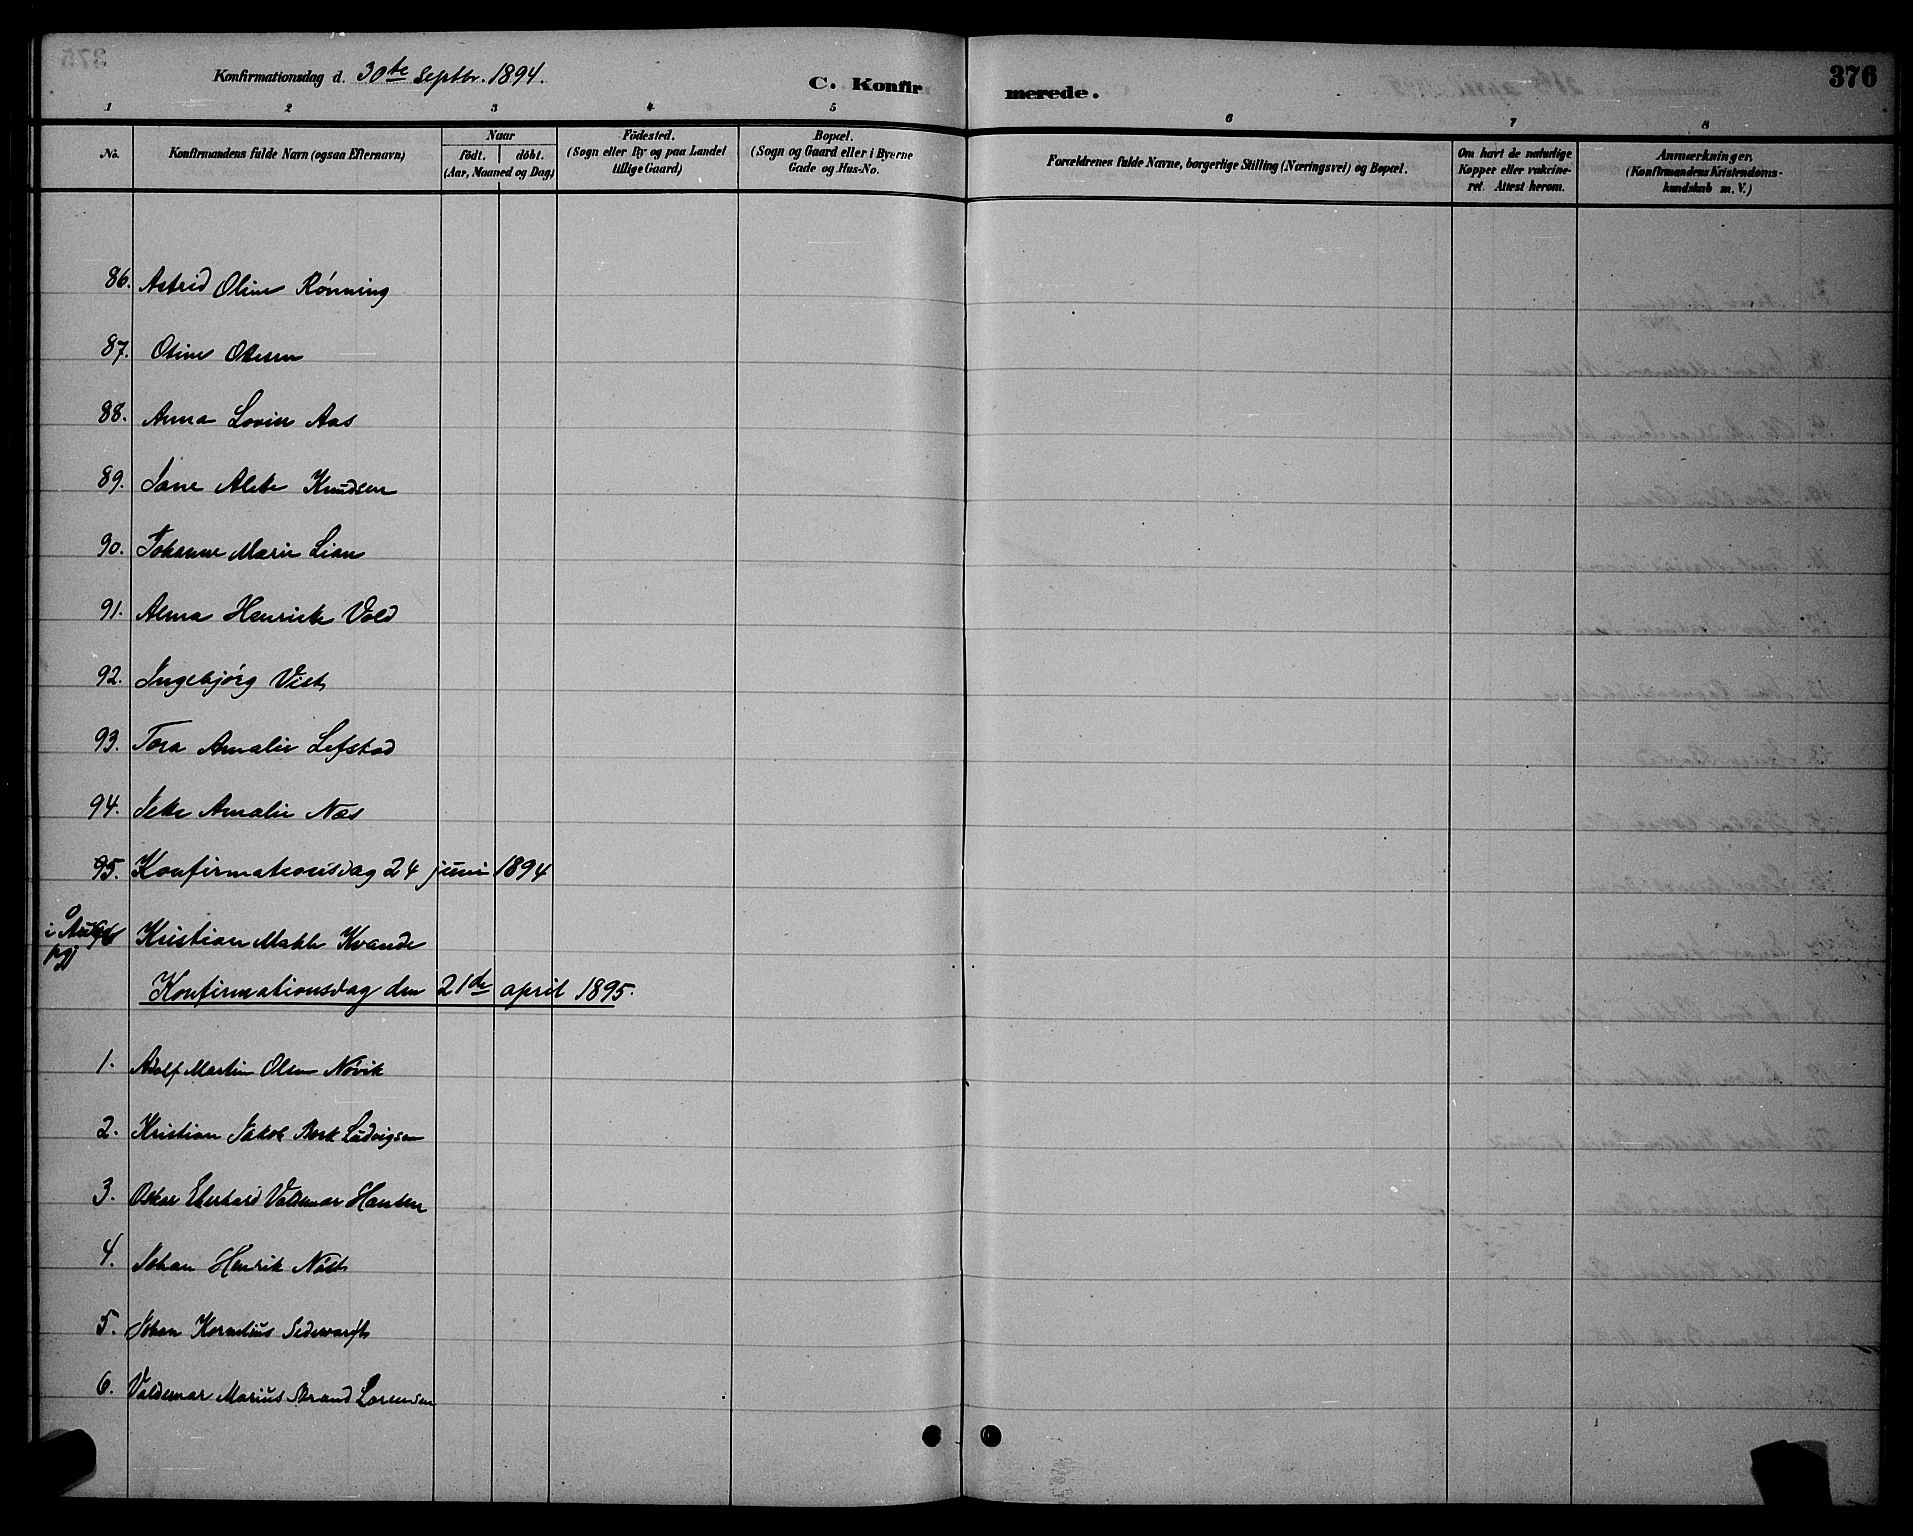 Konfirmationsdag d. 30te Septbr. 1894.
C. Konfirmerede.
376
1 2 3 4 5 6 7 8
No.
Konfirmandens fulde Navn (ogsaa Efternavn)
Naar
födt. döbt.
(Aar, Maaned og Dag)
Födested.
(Sogn eller By og paa Landet
tillige Gaard)
Bopæl.
(Sogn og Gaard eller i Byerne
Gade og Hus-No.
Forældrenes fulde Navne, borgerlige Stilling (Næringsvei) og Bopæl.
Om havt de naturlige
Kopper eller vakcine-
ret. Attest herom.
Anmærkninger.
(Konfirmandens Kristendoms-
kundskab m. V.)
86. Astrid Oline Rönning
87. Otine Olesen
88. Anna Lovise Aas
89. Jane Alete Knudsen
90. Johanne Marie Lian
91. Alma Henrikke Vold
92. Ingebjörg Vist
93. Tora Amalie Lefstad
94. Jette Amalie Næs
95. Konfirmationsdag 24 juni 1894
96 Kristian Kvande
Konfirmationsdag den 21de april 1895.
1. Adolf Martin Olsen Növik
2. Kristian Jakob Ludvigsen
3. Oskar Eberhard Valdemar Hansen
4. Johan Henrik Nöst
5. Johan Kornelius
6. Valdemar Marius Strand Lorensen